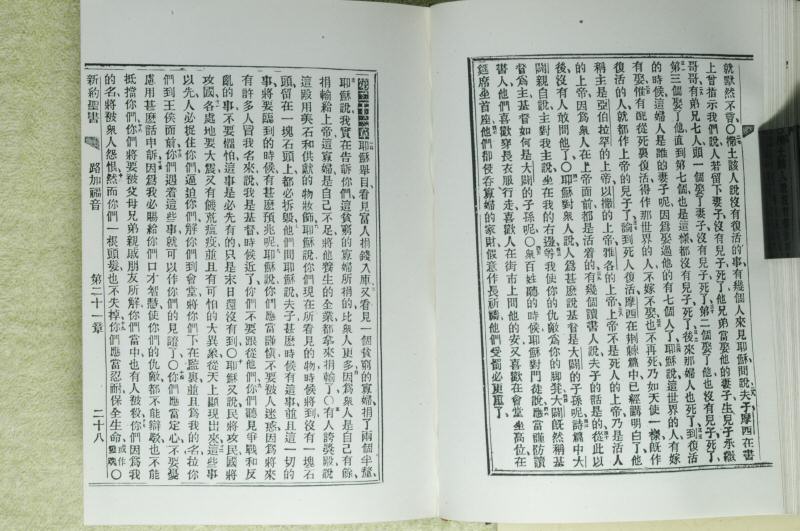 就默然不言〇撒土該人說沒有復活的事有幾個人來見耶穌問說夫子摩西在書
上曾指示我們說人若留下妻子沒有兒子死了他兄弟當娶他的妻子生兒子承繼
哥哥有弟兄七人頭一個娶了妻子沒有兒子死了第二個娶了他也沒有兒子死了
第三個娶了他直到第七個也是這樣都沒有兒子死了後來那婦人也死了到復活
的時候這婦人是誰的妻子呢因爲娶過他的有七個人了耶穌說這世界的人有嫁
有娶惟有配從死裏復活得作那世界的人不嫁不娶也不再死乃如天使一樣旣作
復活的人就都作上帝的兒子了論到死人復活摩西在荆棘篇中已經講明白了他
稱主是亞伯拉罕的上帝以撒的上帝雅各的上帝上帝不是死人的上帝乃是活人
的上帝因爲衆人在上帝面前都是活着的有幾個讀書人說夫子的話是的從此以
後沒有人敢問他了〇耶穌對衆人說人爲甚麼說基督是大闢的子孫呢詩篇中大
闢親自說主對我主說坐在我的右邊等我使你的仇敵爲你的脚凳大闢旣然稱基
督爲主基督如何是大闢的子孫呢〇衆百姓聽的時候耶穌對門徒說應當謹防讀
書人他們喜歡穿長衣服行走喜歡人在街市上問他的安又喜歡在會堂坐高位在
筵席坐首座他們卻侵吞寡婦的家財假意作長祈禱他們受罰必更重了
第二十一章耶穌舉目看見富人捐錢入庫又看見一個貧窮的寡婦捐了兩個半釐
耶穌說我實在告訴你們這貧窮的寡婦所捐的比衆人更多因爲衆人是自己有餘
捐輸給上帝這寡婦是自己不足將他養生的全業都拿來捐輸了〇有人誇獎殿說
這殿用美石和供獻的物妝飾耶穌說你們現在所看見的物時候將到沒有一塊石
頭留在一塊石頭上都必拆毀他們問耶穌說夫子甚麼時候有這事並且這一切的
事將要臨到的時候有甚麼預兆呢耶穌說你們應當謹愼不要被人迷惑因爲將來
有許多人冒我名來說我是基督時候近了你們不要跟從他們你們聽見爭戰和反
亂的事不要懼怕這事是必先有的只是末日還沒有到〇耶穌又說民將攻民國將
攻國各處地要大震又有饑荒瘟疫並且有可怕的大異象從天上顯現出來這些事
以先人必捉住你們逼迫你們解你們到會堂將你們下在監裏並且爲我的名拉你
們到王侯面前你們遇着這些事就可以作你們的見證了〇你們應當定心不要憂
慮用甚麼話申訴因爲我必賜給你們口才智慧使你們的仇敵都不能辯駁也不能
抵擋你們你們將要被父母兄弟親戚朋友所解你們當中也有人被殺你們因爲我
的名將被衆人怨恨然而你們一根頭髮也不失掉你們應當忍耐保全生命〇
新約聖書 路加福音 第二十一章 二十八